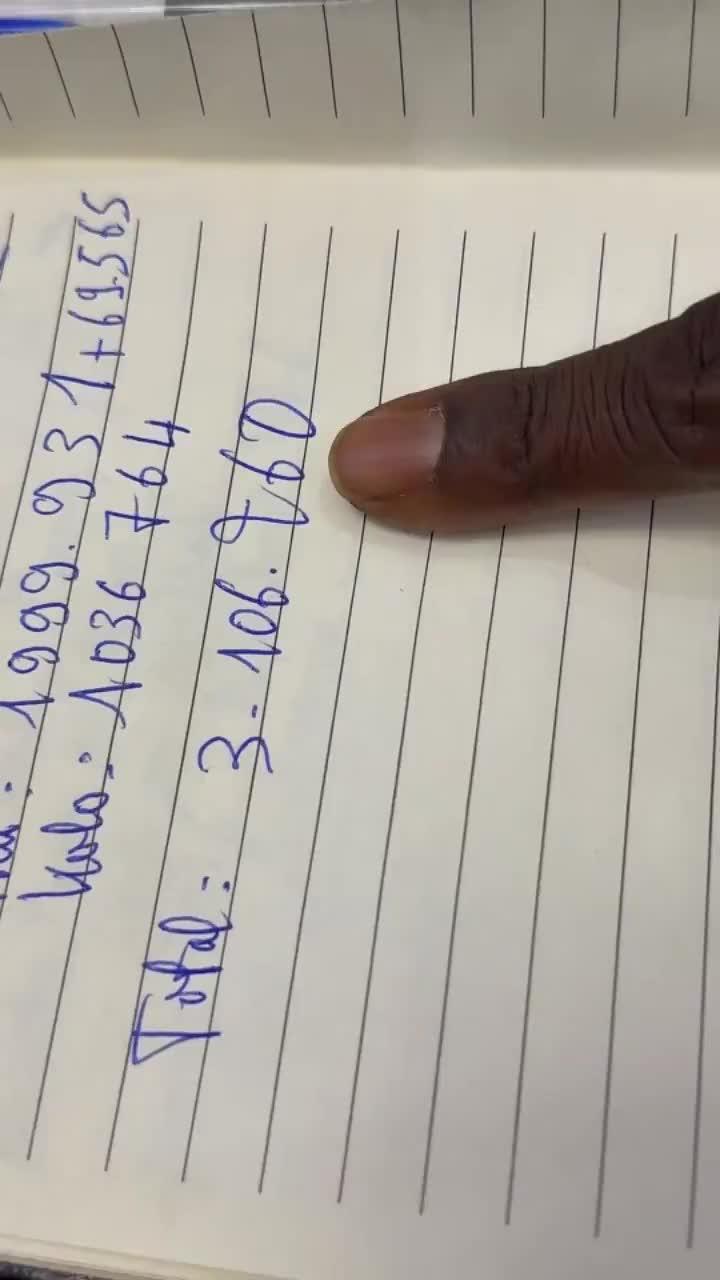 1999.931+69.565
1036 764
Total : 3-106.260